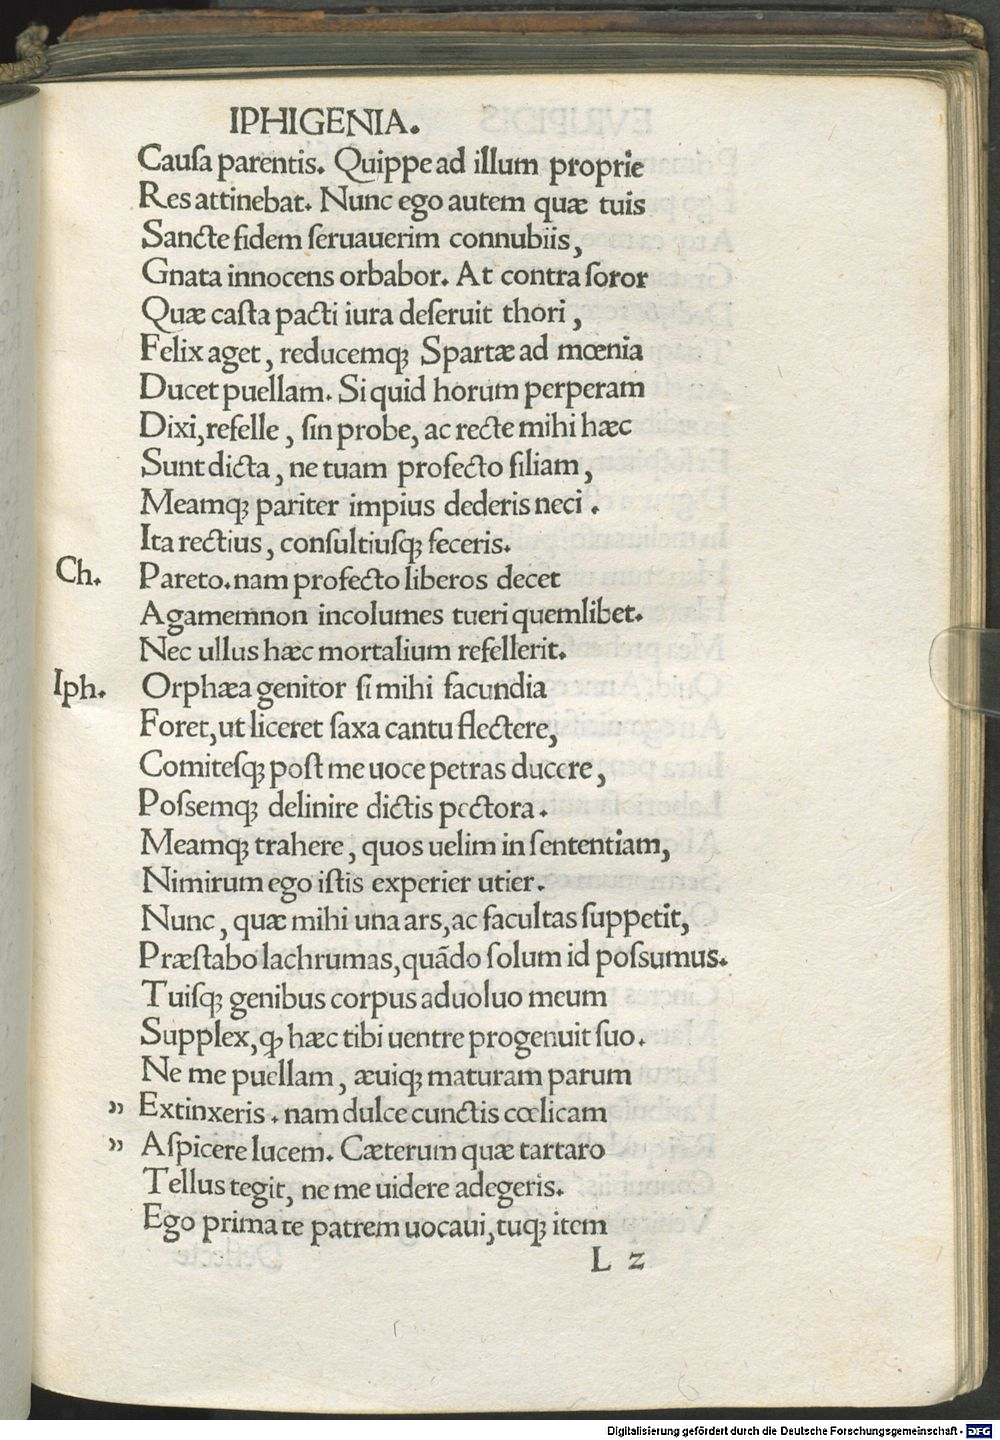 IPHIGENIA.
Cauſa parentis. Quippe ad illum proprie
Res attinebat. Nunc ego autem quæ tuis
Sancte fidem ſeruauerim connubiis,
Gnata innocens orbabor. At contra ſoror
Quæ caſta pacti iura deſeruit thori,
Felix aget, reducemq; Spartæ ad mœnia
Ducet puellam. Si quid horum perperam
Dixi, refelle, ſin probe, ac recte mihi hæc
Sunt dicta, ne tuam profecto filiam,
Meamq; pariter impius dederis neci.
Ita rectius, conſultiuſq; feceris.
Ch. Pareto. nam profecto liberos decet
Agamemnon incolumes tueri quemlibet.
Nec ullus hæc mortalium refellerit.
Iph. Orphæa genitor ſi mihi facundia
Foret, ut liceret ſaxa cantu flectere,
Comiteſq; poſt me uoce petras ducere,
Poſſemq; delinire dictis pectora.
Meamq; trahere, quos uelim in ſententiam,
Nimirum ego iſtis experier utier.
Nunc, quæ mihi una ars, ac facultas ſuppetit,
Præſtabo lachrumas, quãdo ſolum id poſſumus.
Tuiſq; genibus corpus aduoluo meum
Supplex, ꝙ hæc tibi uentre progenuit ſuo.
Ne me puellam, æuiq; maturam parum
” Extinxeris. nam dulce cunctis cœlicam
” Aſpicere lucem. Cæterum quæ tartaro
Tellus tegit, ne me uidere adegeris.
Ego prima te patrem uocaui, tuq; item
L 2
Digitalisierung gefördert durch die Deutsche Forschungsgemeinschaft - DFG